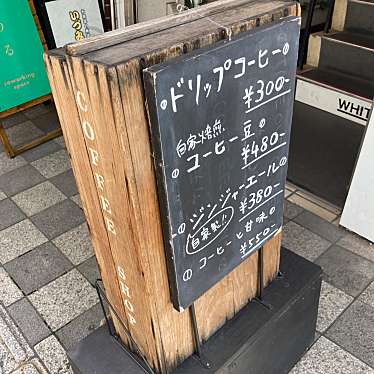 ドリップコーヒー
¥300-
自家焙煎
コーヒー豆
¥480-
ジンジャーエール
¥380-
自家製!
コーヒーと甘味
¥550-
COFFEE SHOP
coworking
space
WHIT